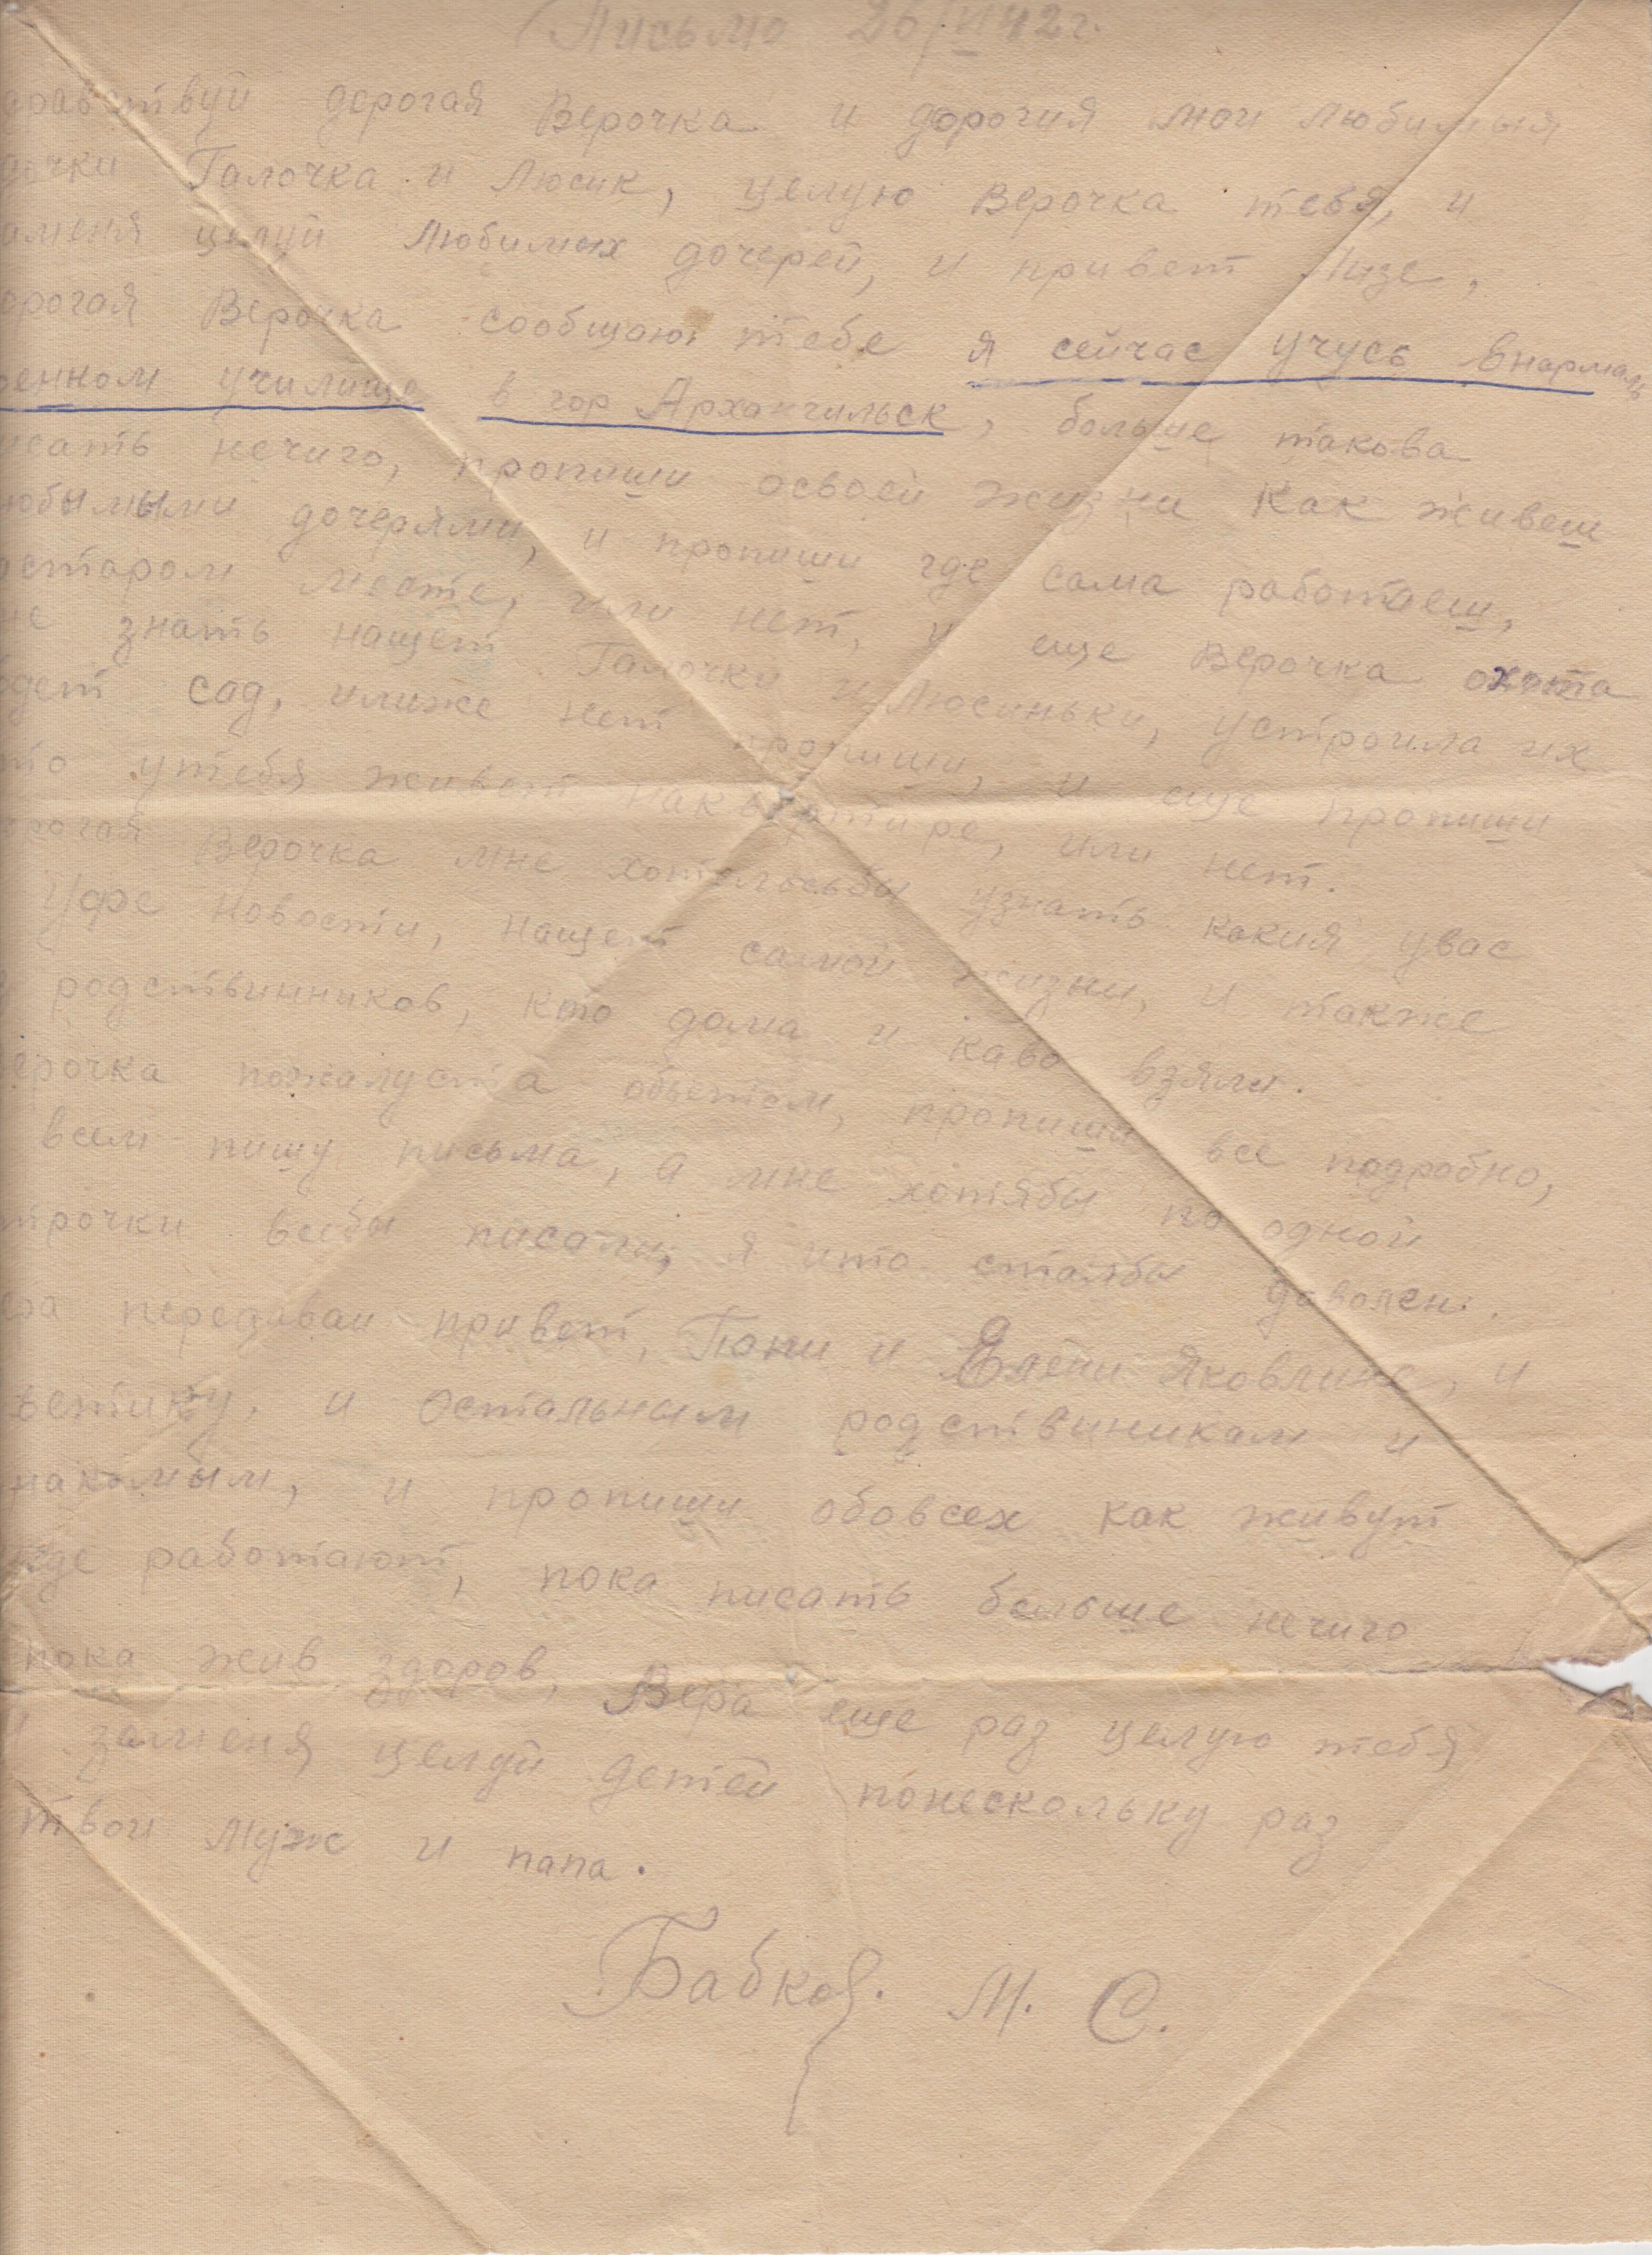 Письмо 26/VI 42 г.
равствуй дорогая Верочка и дорогия мои любимыя
дочки Галочка и Люсик, целую Верочка тебя, и
заменя целуй любимых дочерей, и привет Лизе,
орогая Верочка сообщаю тебе я сейчас учусь внармаль
оенном училище в гор Архангильск, больше такова
исать нечиго, пропиши освоей жизни Как живеш
юбымыми дочерями, и пропиши где сама работаеш,
остаром месте, или нет, и еще Верочка охота
не знать нащет Галочки и Люсиньки, устроила их
дет сад, илиже нет пропиши, и еще пропиши
то утебя живет наквартире, или нет.
орогая Верочка мне хотелосьбы узнать какия увас
Уфе новости, нащет самой жизни, и также
родствинников, кто дома и каво взяли.
ерочка пожалуста обьетом, пропиши все подробно,
всем пишу письма, а мне хотябы по одной
трочки всебы писали, я ито сталбы доволен.
ера передавай привет, Пани и Елени Яковлине, и
ветику, и остальным родствиникам и
накомым, и пропиши обовсех как живут
где работают, пока писать больше нечиго
пока жив здоров, Вера еще раз целую тебя
и заменя целуй детей понескольку раз
твой муж и папа.
Бабков. М. С.